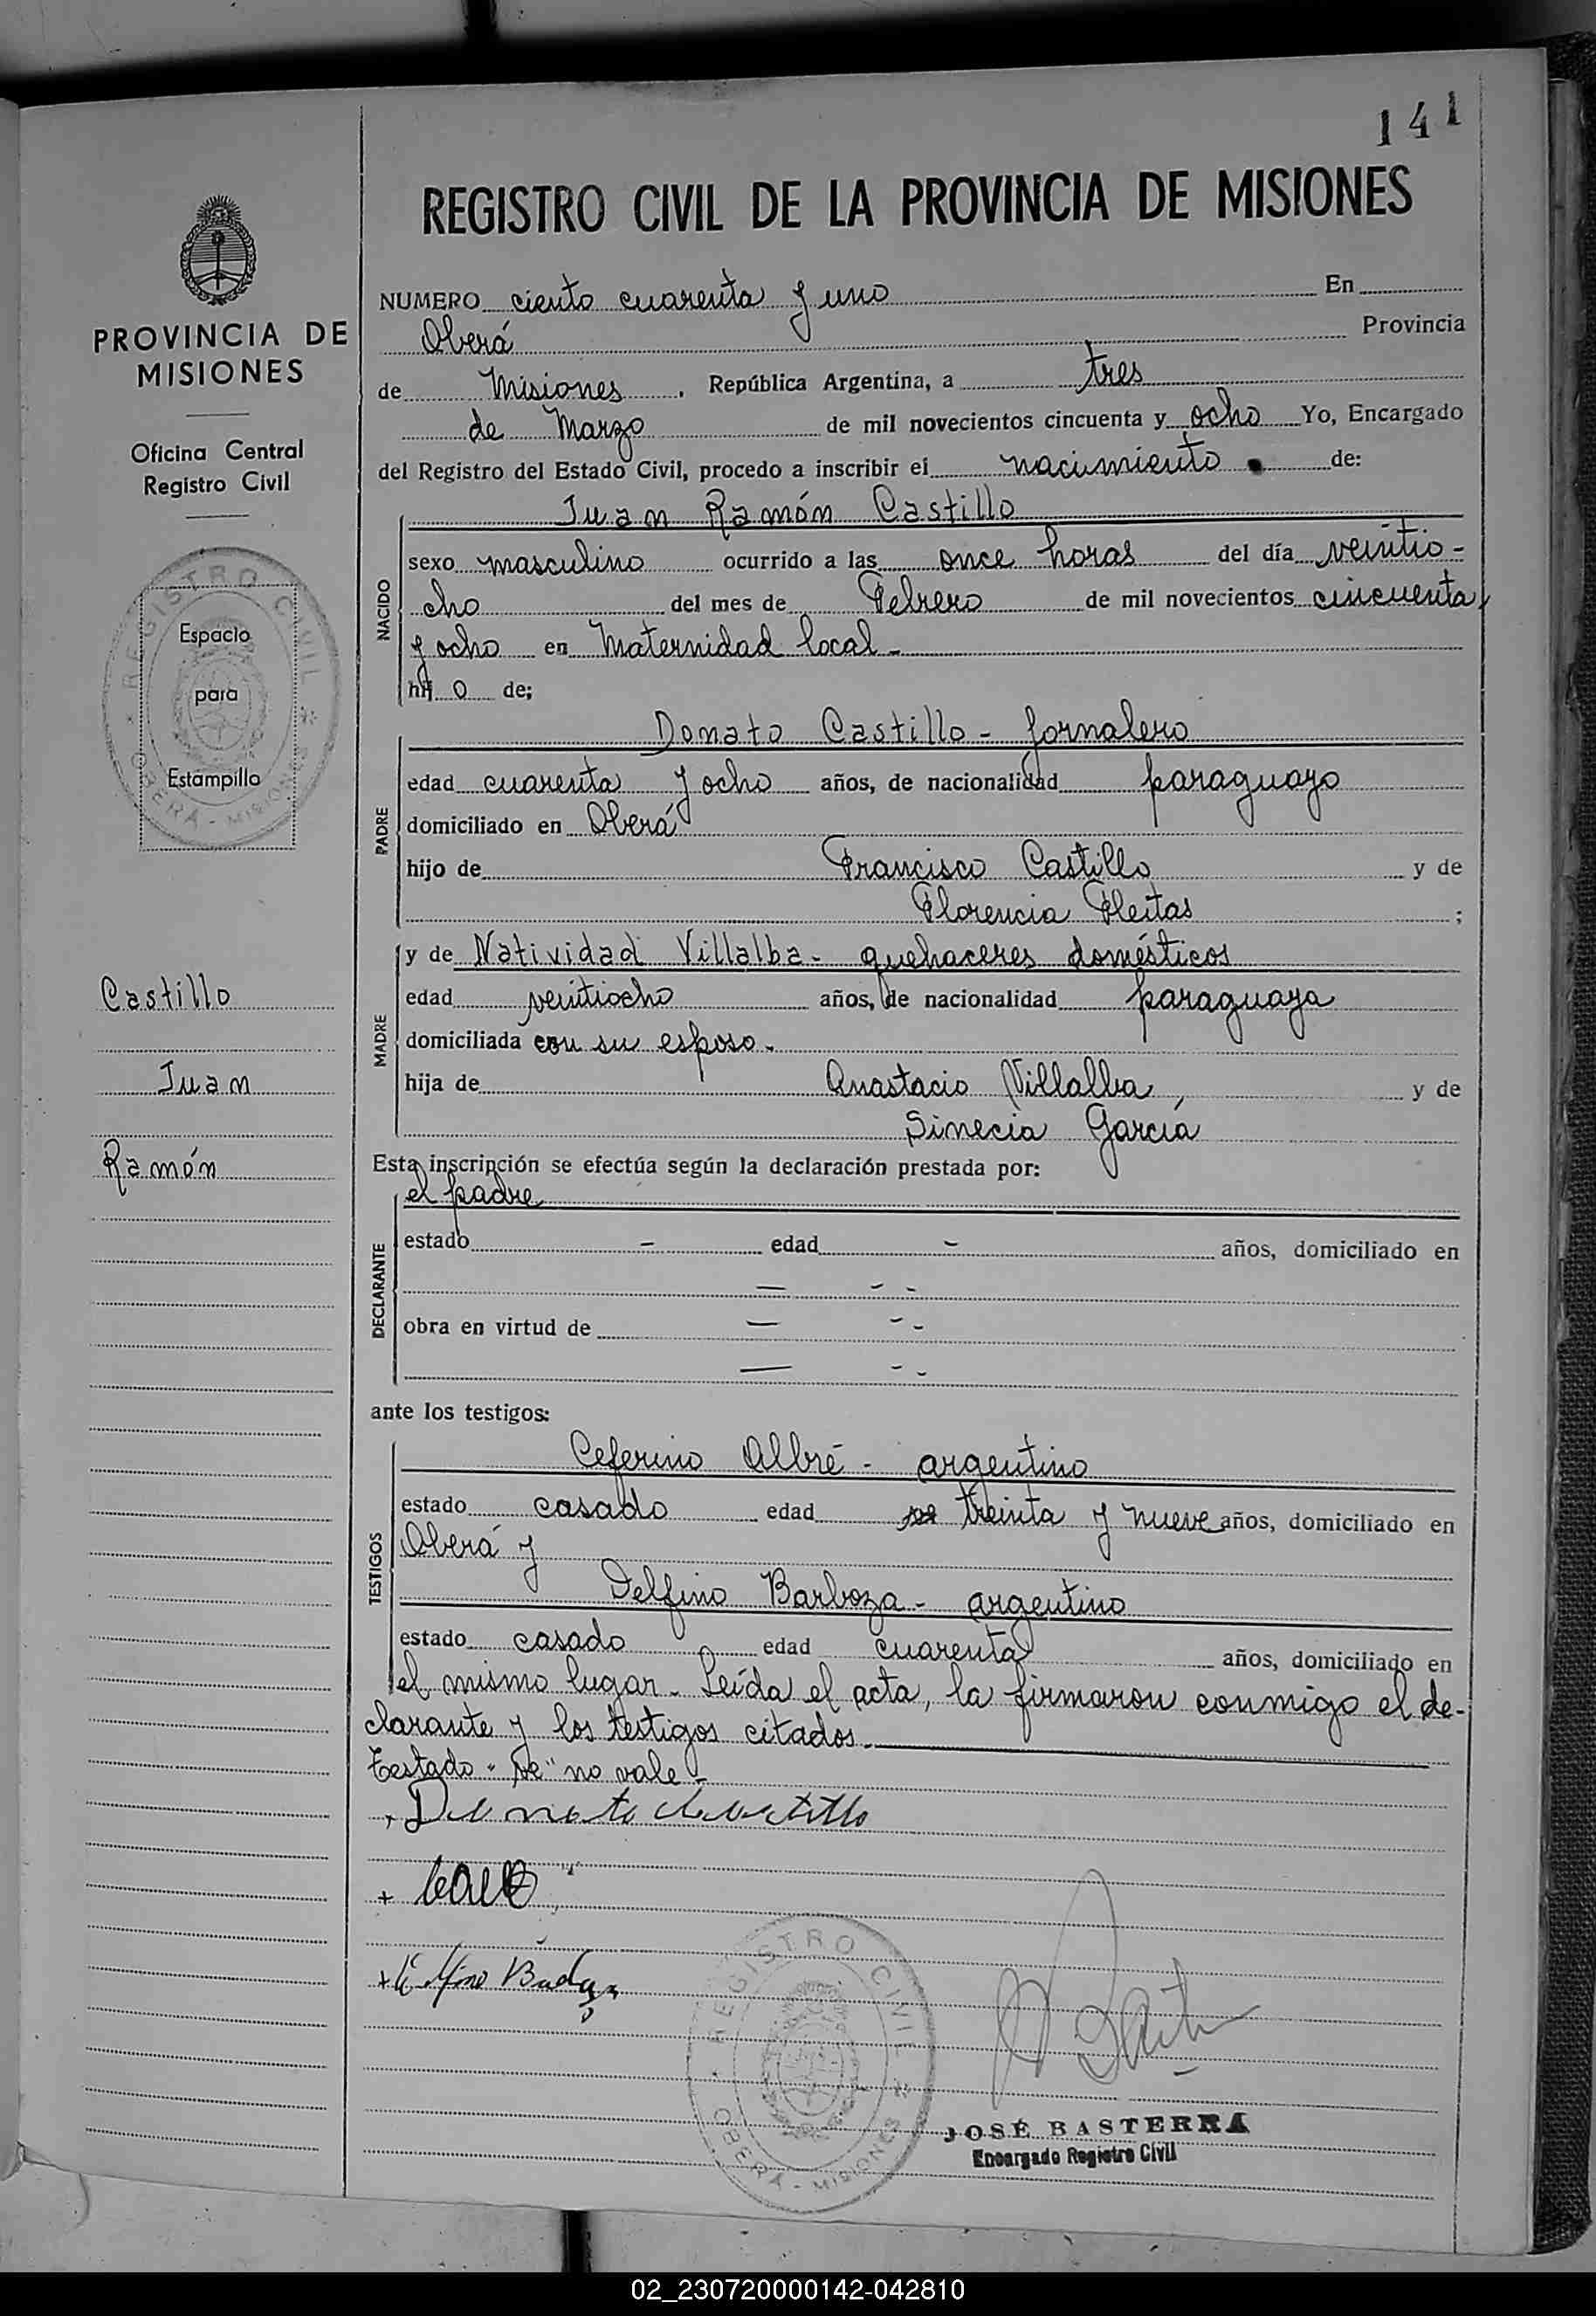 141
REGISTRO CIVIL DE LA PROVINCIA DE MISIONES
PROVINCIA DE
MISIONES
Oficina Central
Registro Civil
REGISTRO CIVIL
OBERÁ - MISIONES
Espacio
para
Estampilla
Castillo
Juan
Ramón
NUMERO ciento cuarenta y uno En
Oberá Provincia
de Misiones, República Argentina, a tres
de Marzo de mil novecientos cincuenta y ocho Yo, Encargado
del Registro del Estado Civil, procedo a inscribir el nacimiento de:
NACIDO
Juan Ramón Castillo
sexo masculino ocurrido a las once horas del día veintio-
cho del mes de Febrero de mil novecientos cincuenta
y ocho en Maternidad local-
hij o de;
PADRE
Donato Castillo - jornalero
edad cuarenta y ocho años, de nacionalidad paraguayo
domiciliado en Oberá
hijo de Francisco Castillo y de
Florencia Fleitas ;
MADRE
y de Natividad Villalba - quehaceres domésticos
edad veintiocho años, de nacionalidad paraguaya
domiciliada con su esposo -
hija de Anastacio Villalba, y de
Sinecia García
Esta inscripción se efectúa según la declaración prestada por:
DECLARANTE
el padre
estado - edad - años, domiciliado en
— - -
obra en virtud de — - -
— - -
ante los testigos:
TESTIGOS
Ceferino Albré - argentino
estado casado edad se treinta y nueve años, domiciliado en
Oberá y
Delfino Barboza - argentino
estado casado edad cuarenta años, domiciliado en
el mismo lugar - Leída el acta, la firmaron conmigo el de-
clarante y los testigos citados.
Testado "se" no vale -
Donato Castillo
REGISTRO CIVIL
OBERÁ - MISIONES
JOSÉ BASTERRA
Encargado Registro Civil
02_230720000142-042810